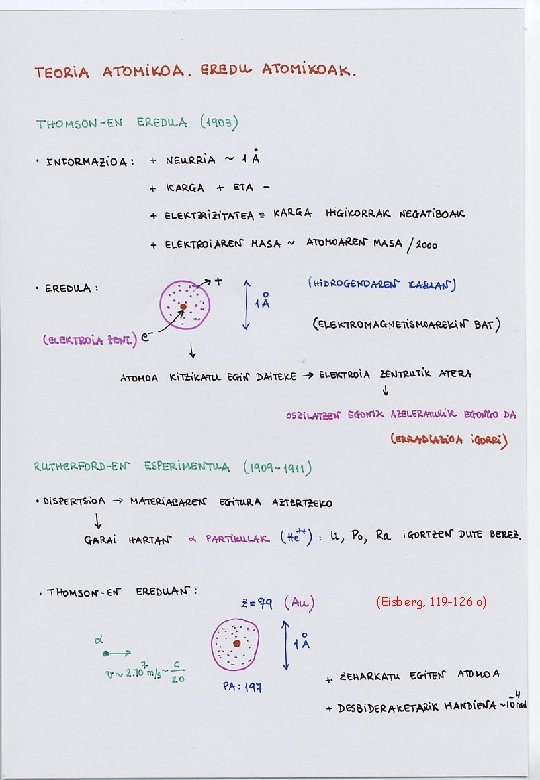 TEORIA ATOMIKOA. EREDU ATOMIKOAK.
THOMSON-EN EREDUA (1903)
· INFORMAZIOA: + NEURRIA ~ 1 Å
+ KARGA + ETA -
+ ELEKTRIZITATEA = KARGA HIGIKORRAK NEGATIBOAK
+ ELEKTROIAREN MASA ~ ATOMOAREN MASA / 2000
· EREDUA: + 1 Å (HIDROGENOAREN KASUAN)
(ELEKTROMAGNETISMOAREKIN BAT)
(ELEKTROIA ZENT.) e⁻
↓
ATOMOA KITZIKATU EGIN DAITEKE → ELEKTROIA ZENTRUTIK ATERA
↓
OSZILATZEN EGONIK AZELERATURIK EGONGO DA
(ERRADIAZIOA IGORRI)
RUTHERFORD-EN ESPERIMENTUA (1909-1911)
· DISPERTSIOA → MATERIAREN EGITURA AZTERTZEKO
↓
GARAI HARTAN α PARTIKULAK (He⁺⁺): U, Po, Ra IGORTZEN DUTE BEREZ.
· THOMSON-EN EREDUAN:
Z=79 (Au) (Eisberg, 119-126 o)
α
1 Å
v ~ 2.10⁷ m/s ~ c/20
PA: 197
+ ZEHARKATU EGITEN ATOMOA
+ DESBIDERAKETARIK HANDIENA ~ 10⁻⁴ rad